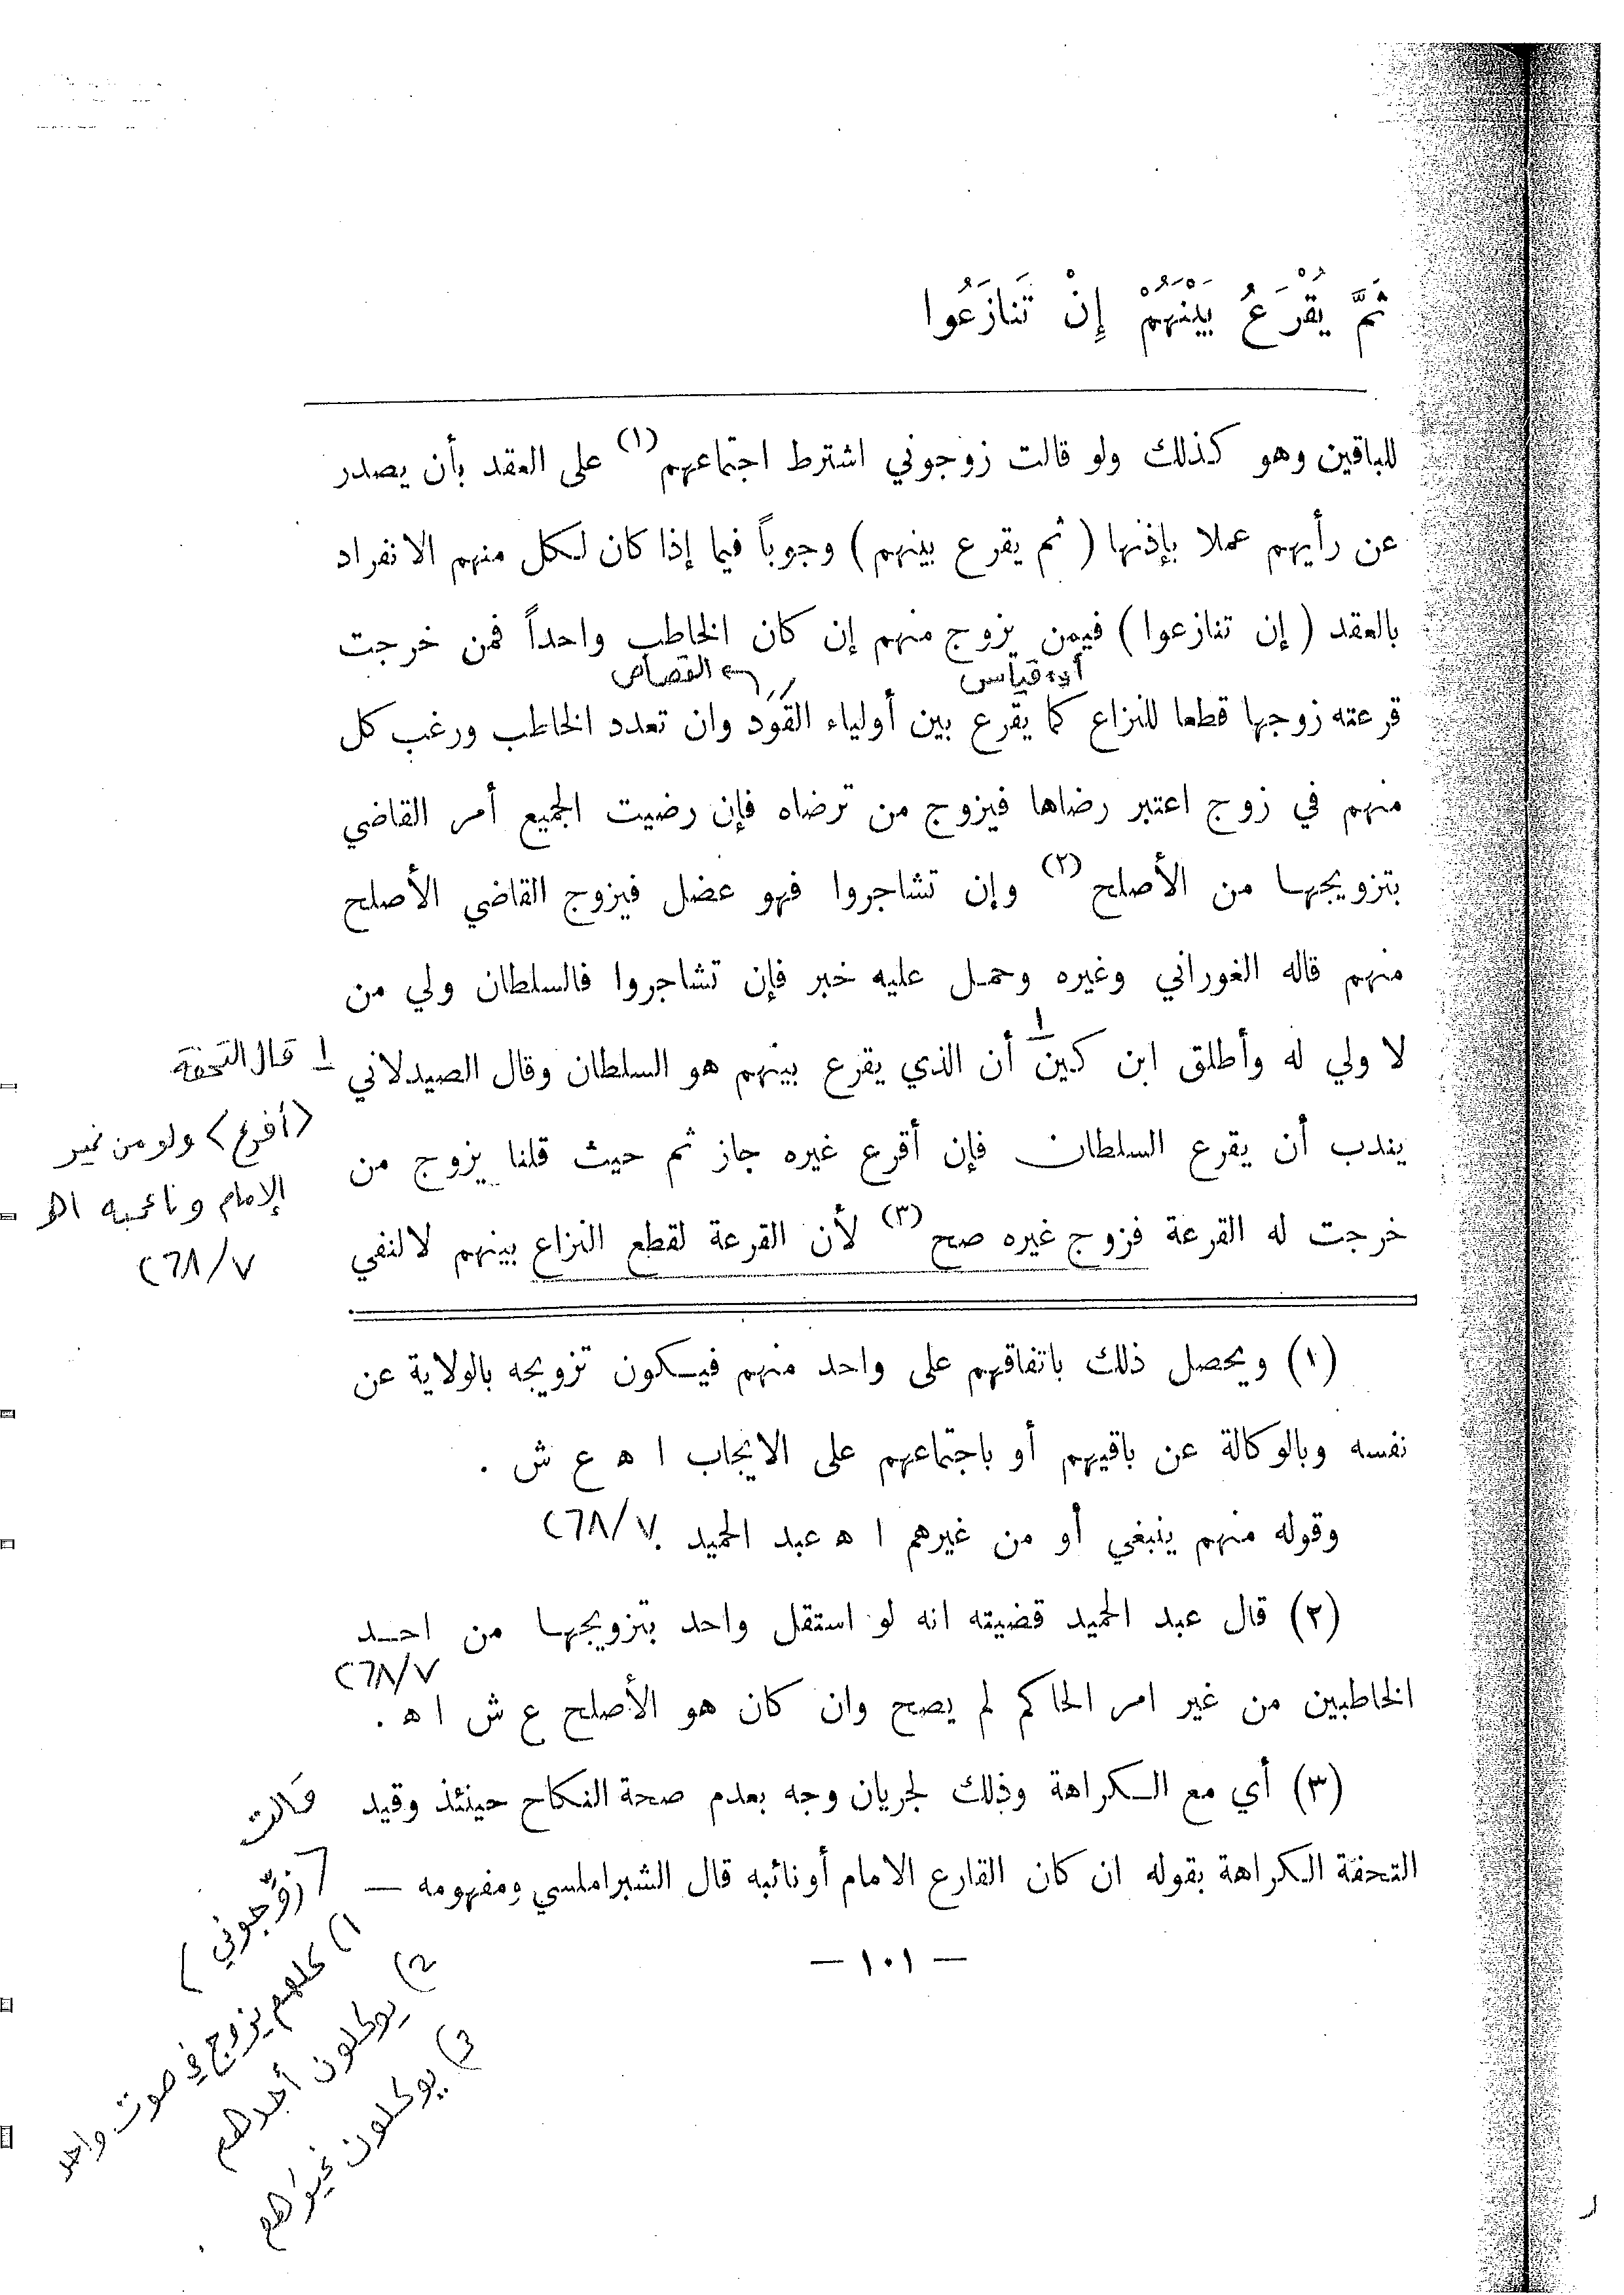 ثُمَّ يُقْرَعُ بَيْنَهُمْ إِنْ تَنَازَعُوا
للباقين وهو كذلك ولو قالت زوجوني اشترط اجتماعهم (١) على العقد بأن يصدر
عن رأيهم عملا بإذنها ( ثم يقرع بينهم ) وجوباً فيما إذا كان لكل منهم الانفراد
بالعقد ( إن تنازعوا ) فيمن يزوج منهم إن كان الخاطب واحداً فمن خرجت
قياس
القصاص
قرعته زوجها قطعا للنزاع كما يقرع بين أولياء القَوَد وان تعدد الخاطب ورغب كل
منهم في زوج اعتبر رضاها فيزوج من ترضاه فإن رضيت الجميع أمر القاضي
بتزويجها من الأصلح (٢) وإن تشاجروا فهو عضل فيزوج القاضي الأصلح
منهم قاله الغوراني وغيره وحمل عليه خبر فإن تشاجروا فالسلطان ولي من
١
لا ولي له وأطلق ابن كبن أن الذي يقرع بينهم هو السلطان وقال الصيدلاني
يندب أن يقرع السلطان فإن أقرع غيره جاز ثم حيث قلنا يزوج من
خرجت له القرعة فزوج غيره صح (٣) لأن القرعة لقطع النزاع بينهم لا لنفي
١ قال التحفة
(أقرع) ولو من غير
الإمام ونائبه اه
٧/٢٦٨
(١) ويحصل ذلك باتفاقهم على واحد منهم فيكون تزويجه بالولاية عن
نفسه وبالوكالة عن باقيهم أو باجتماعهم على الايجاب ا ه ع ش .
وقوله منهم ينبغي أو من غيرهم ا ه عبد الحميد . ٧/٢٦٨
(٢) قال عبد الحميد قضيته انه لو استقل واحد بتزويجها من احد
٧/٢٦٨
الخاطبين من غير امر الحاكم لم يصح وان كان هو الأصلح ع ش ا ه .
(٣) أي مع الكراهة وذلك لجريان وجه بعدم صحة النكاح حينئذ وقيد
التحفة الكراهة بقوله ان كان القارع الامام أو نائبه قال الشبراملسي ومفهومه —
— ١٠١ —
قالت
(زوّجوني)
١) كلهم يزوج في صوت واحد
2) يوكلون أحدهم
3) يوكلون غيرهم